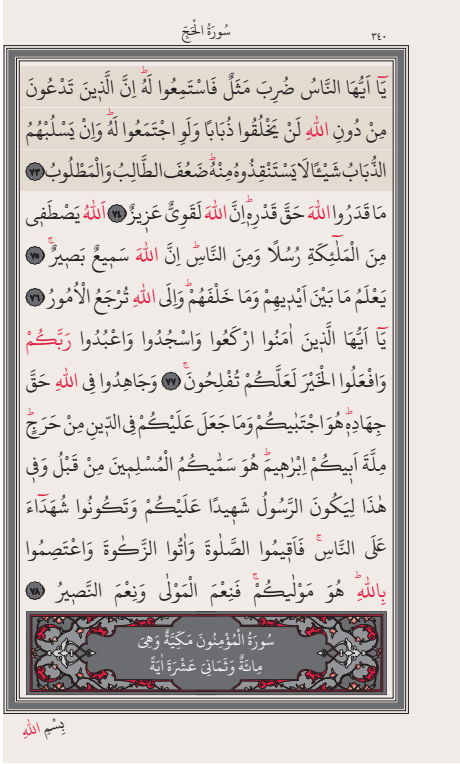 سُورَةُ الْحَجِّ
٣٤٠
يَٓا اَيُّهَا النَّاسُ ضُرِبَ مَثَلٌ فَاسْتَمِعُوا لَهُۜ اِنَّ الَّذ۪ينَ تَدْعُونَ
مِنْ دُونِ اللّٰهِ لَنْ يَخْلُقُوا ذُبَابًا وَلَوِ اجْتَمَعُوا لَهُۜ وَاِنْ يَسْلُبْهُمُ
الذُّبَابُ شَيْـًٔا لَا يَسْتَنْقِذُوهُ مِنْهُۜ ضَعُفَ الطَّالِبُ وَالْمَطْلُوبُ ﴿٧٣﴾
مَا قَدَرُوا اللّٰهَ حَقَّ قَدْرِه۪ۜ اِنَّ اللّٰهَ لَقَوِيٌّ عَز۪يزٌ ﴿٧٤﴾ اَللّٰهُ يَصْطَف۪ي
مِنَ الْمَلٰٓئِكَةِ رُسُلًا وَمِنَ النَّاسِۜ اِنَّ اللّٰهَ سَم۪يعٌ بَص۪يرٌۚ ﴿٧٥﴾
يَعْلَمُ مَا بَيْنَ اَيْد۪يهِمْ وَمَا خَلْفَهُمْۜ وَاِلَى اللّٰهِ تُرْجَعُ الْاُمُورُ ﴿٧٦﴾
يَٓا اَيُّهَا الَّذ۪ينَ اٰمَنُوا ارْكَعُوا وَاسْجُدُوا وَاعْبُدُوا رَبَّكُمْ
وَافْعَلُوا الْخَيْرَ لَعَلَّكُمْ تُفْلِحُونَۚ ﴿٧٧﴾ وَجَاهِدُوا فِي اللّٰهِ حَقَّ
جِهَادِه۪ۜ هُوَ اجْتَبٰيكُمْ وَمَا جَعَلَ عَلَيْكُمْ فِي الدّ۪ينِ مِنْ حَرَجٍۜ
مِلَّةَ اَب۪يكُمْ اِبْرٰه۪يمَۜ هُوَ سَمّٰيكُمُ الْمُسْلِم۪ينَ مِنْ قَبْلُ وَف۪ي
هٰذَا لِيَكُونَ الرَّسُولُ شَه۪يدًا عَلَيْكُمْ وَتَكُونُوا شُهَدَٓاءَ
عَلَى النَّاسِۚ فَاَق۪يمُوا الصَّلٰوةَ وَاٰتُوا الزَّكٰوةَ وَاعْتَصِمُوا
بِاللّٰهِۜ هُوَ مَوْلٰيكُمْۚ فَنِعْمَ الْمَوْلٰى وَنِعْمَ النَّص۪يرُ ﴿٧٨﴾
سُورَةُ الْمُؤْمِنُونَ مَكِّيَّةٌ وَهِيَ
مِائَةٌ وَثَمَانِيَ عَشْرَةَ اٰيَةً
بِسْمِ اللّٰهِ